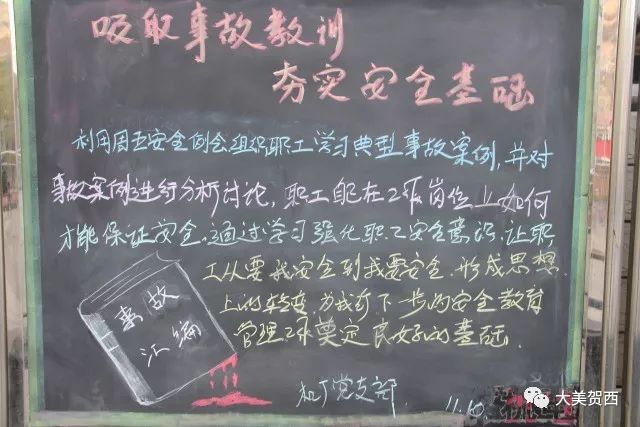 吸取事故教训
夯实安全基础
利用周五安全例会组织职工学习典型事故案例,并对
事故案例进行分析讨论,职工能在工作岗位上如何
才能保证安全。通过学习强化职工安全意识,让职
工从要我安全到我要安全,形成思想
上的转变,为我矿下一步的安全教育
管理工作奠定良好的基础.
事故
汇编
机厂党支部
11.10
大美贺西